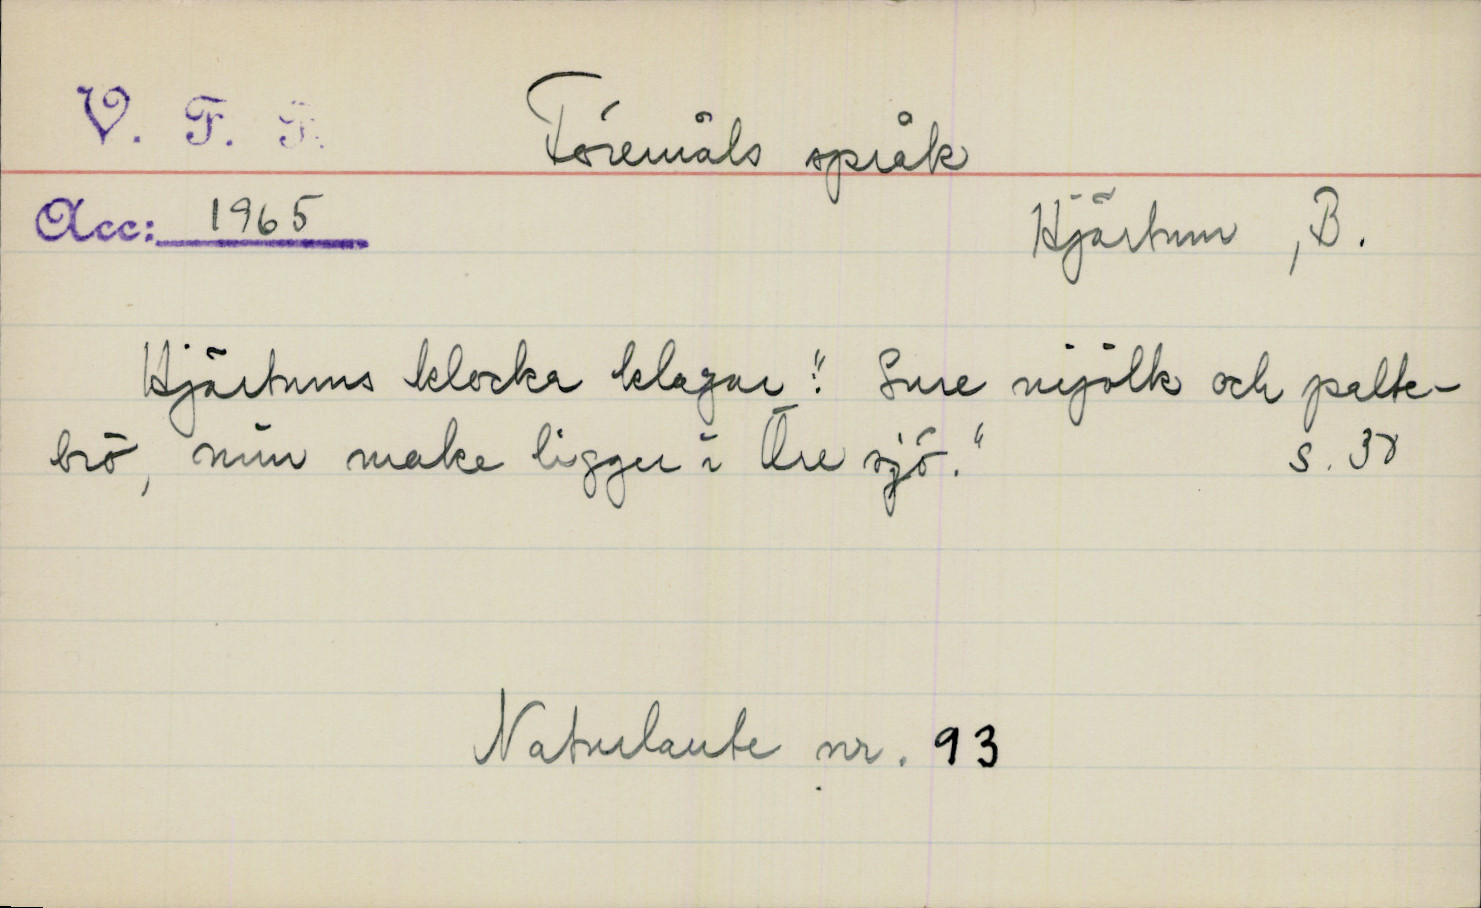 V. F. F.
Föremåls språk
Acc: 1965
Hjärtum, B.
Hjärtums klocka klagar: "Sure mjölk och palte-
brö, min make ligger i Öre sjö."
s. 38
Naturlaute nr. 93